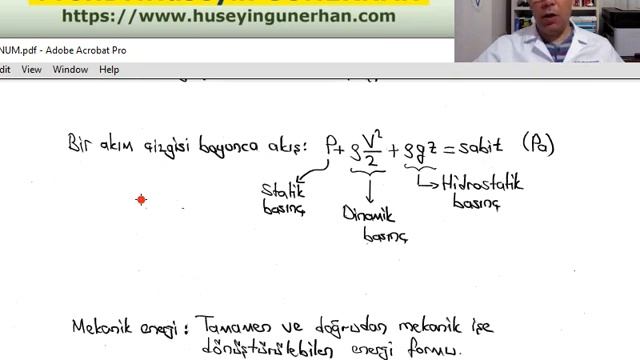 https://www.huseyingunerhan.com
NUM.pdf - Adobe Acrobat Pro
dit View Window Help
Bir akım çizgisi boyunca akış: P + ρ V²/2 + ρgz = sabit (Pa)
Statik basınç
Dinamik basınç
Hidrostatik basınç
Mekanik enerji : Tamamen ve doğrudan mekanik işe
dönüştürülebilen enerji formu.